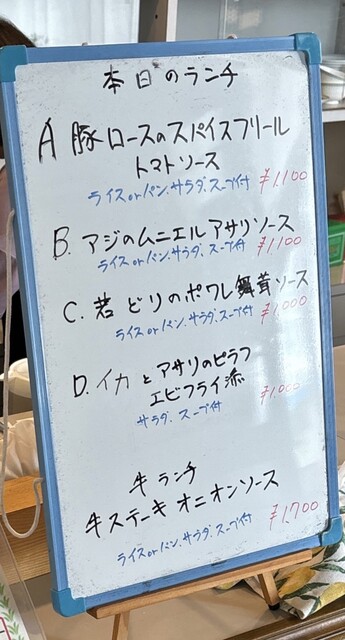 本日のランチ
A 豚ロースのスパイスフリール
トマトソース
ライスorパン、サラダ、スープ付 ¥1,100
B. アジのムニエル アサリソース
ライスorパン、サラダ、スープ付 ¥1,100
C. 若どりのポワレ舞茸ソース
ライスorパン、サラダ、スープ付 ¥1,000
D. イカとアサリのピラフ
エビフライ添
サラダ、スープ付 ¥1,000
牛ランチ
牛ステーキ オニオンソース
ライスorパン、サラダ、スープ付 ¥1,700